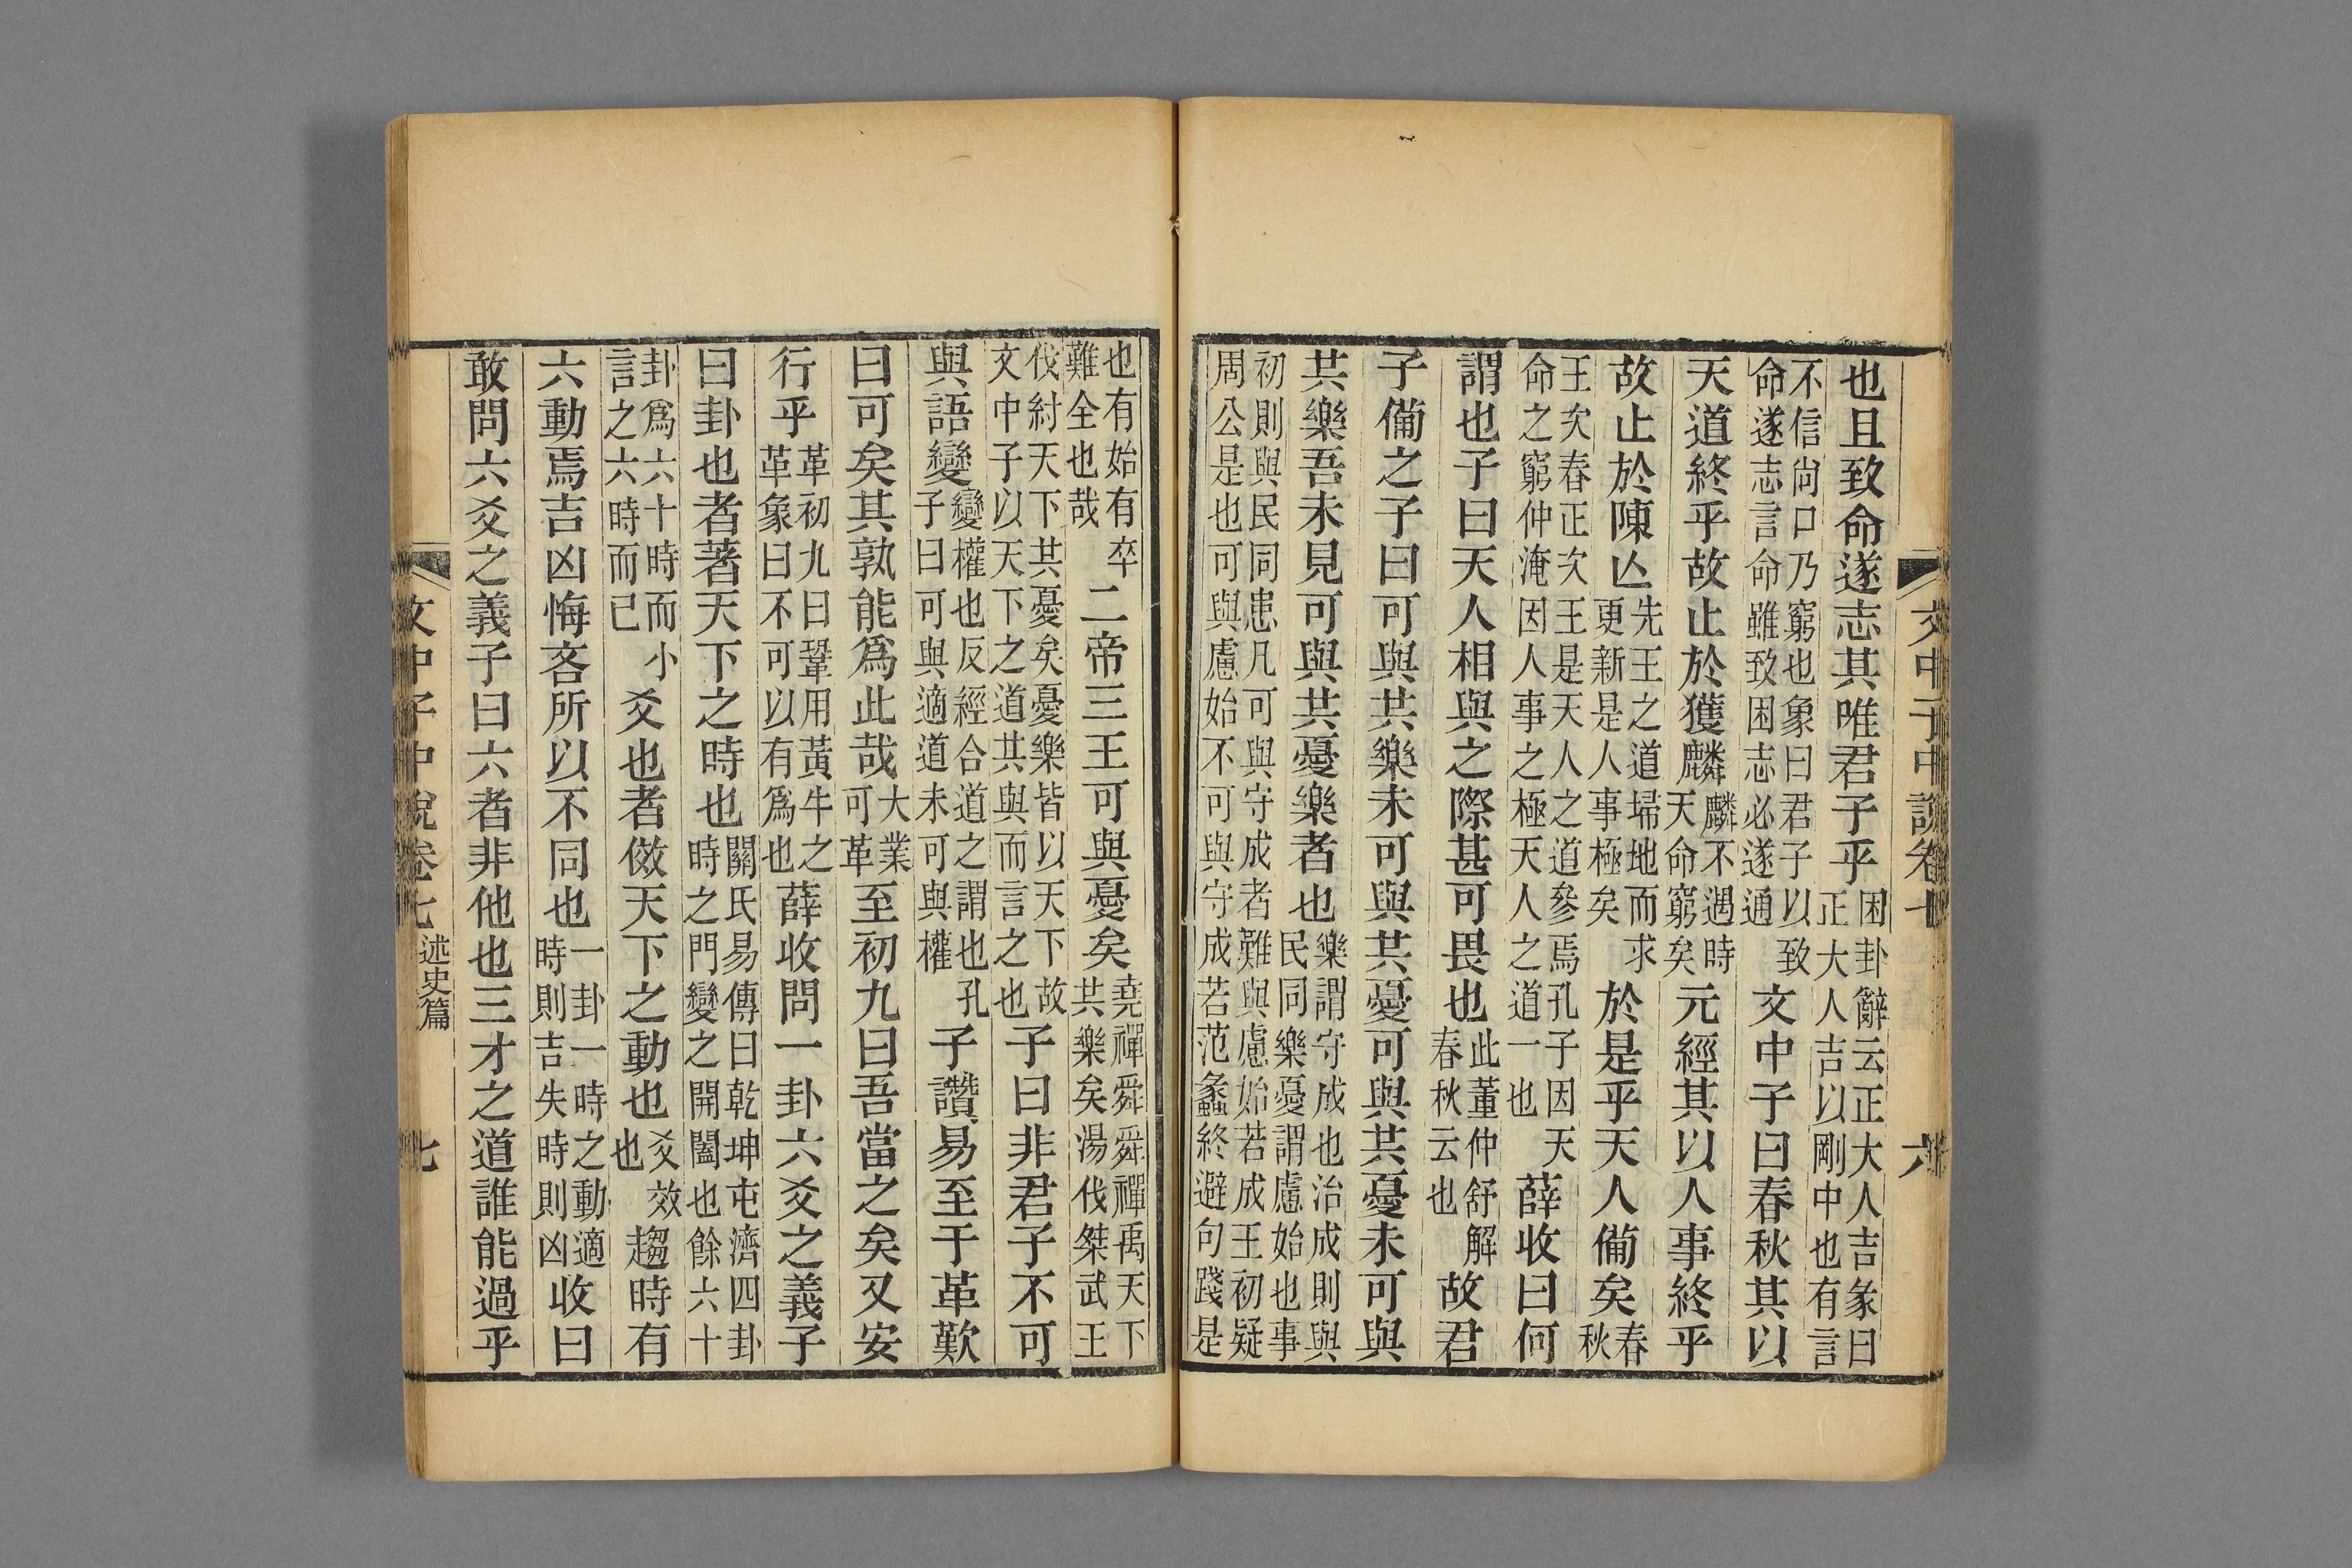 文中子中說卷七　六
也且致命遂志其唯君子乎困卦辭云正大人吉彖曰正大人吉以剛中也有言
不信尚口乃窮也象曰君子以致命遂志言命雖致困志必遂通文中子曰春秋其以
天道終乎故止於獲麟麟不遇時天命窮矣元經其以人事終乎
故止於陳亾先王之道埽地而求更新是人事極矣於是乎天人備矣春秋
王次春正次王是天人之道參焉孔子因天命之窮仲淹因人事之極天人之道一也薛收曰何
謂也子曰天人相與之際甚可畏也此董仲舒解春秋云也故君
子備之子曰可與共樂未可與共憂可與共憂未可與
共樂吾未見可與共憂樂者也樂謂守成也治成則與民同樂憂謂慮始也事
初則與民同患凡可與守成者難與慮始若成王初疑周公是也可與慮始不可與守成若范蠡終避句踐是
也有始有卒難全也哉二帝三王可與憂矣堯禪舜舜禪禹天下共樂矣湯伐桀武王
伐紂天下共憂矣憂樂皆以天下故文中子以天下之道其與而言之也子曰非君子不可
與語變變權也反經合道之謂也孔子曰可與適道未可與權子讚易至于革歎
曰可矣其孰能爲此哉大業可革至初九曰吾當之矣又安
行乎革初九曰鞏用黃牛之革象曰不可以有爲也薛收問一卦六爻之義子
曰卦也者著天下之時也關氏易傳曰乾坤屯濟四卦時之門變之開闔也餘六十
卦爲六十時而小言之六時而已爻也者傚天下之動也爻效也趨時有
六動焉吉凶悔吝所以不同也一卦一時之動適時則吉失時則凶收曰
敢問六爻之義子曰六者非他也三才之道誰能過乎
文中子中說卷七　述史篇　七